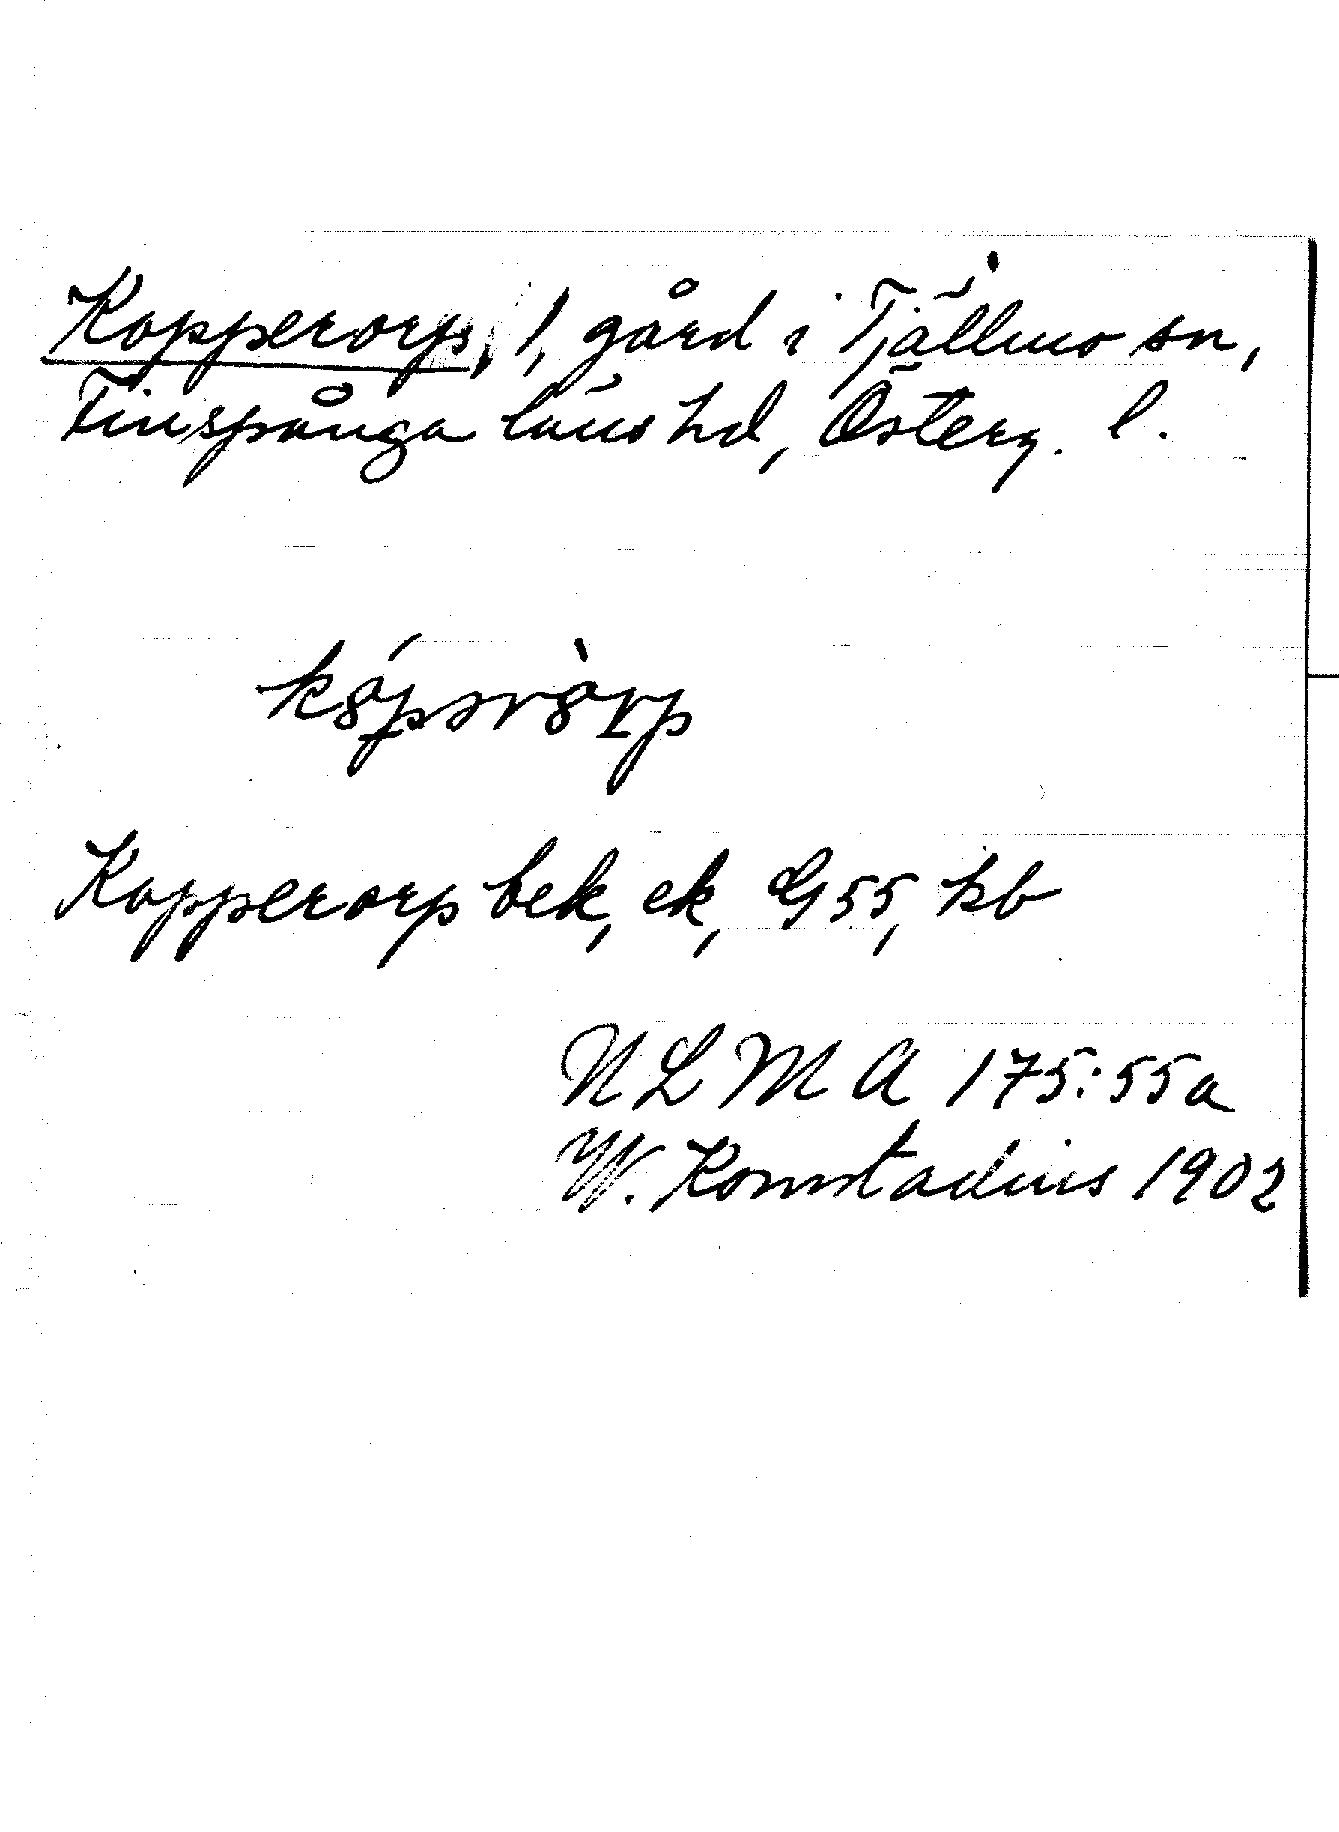 Kopperorp, 1, gård i Tjällmo sn,
Finspånga läns hd, Österg. l.
Kopperorp bek, ek, G 55, kb
N L M A 175:55a
W. Konstadius 1902